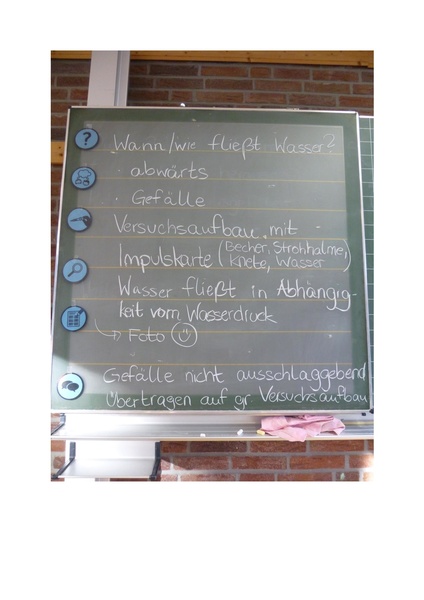 ?
Wann/wie fließt Wasser?
· abwärts
· Gefälle
Versuchsaufbau mit
Impulskarte (Becher, Strohhalme,
Knete, Wasser)
Wasser fließt in Abhängig-
keit vom Wasserdruck
→ Foto
Gefälle nicht ausschlaggebend
Übertragen auf gr. Versuchsaufbau